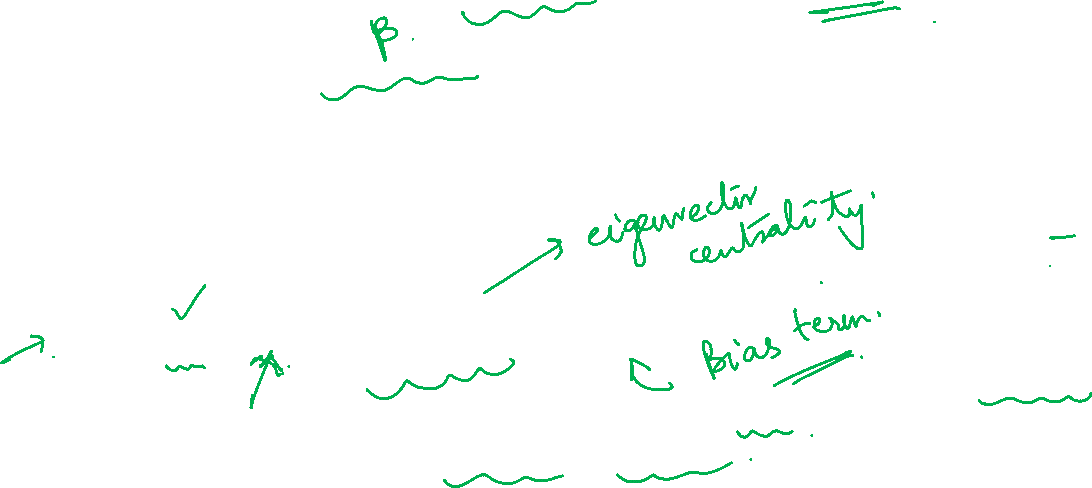 β.
eigenvector
centrality.
Bias term.